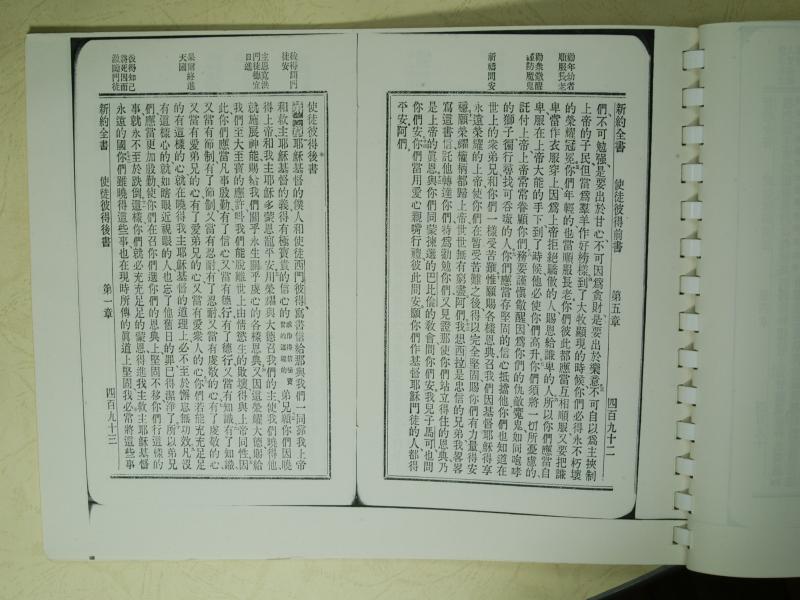 勸年幼者
順服長老
勸衆儆醒
謹防魔鬼
祈禱問安
新約全書　使徒彼得前書　第五章　四百九十二
們、不可勉强、是要出於甘心、不可因爲貪財、是要出於樂意、不可自以爲主、挾制
上帝的子民、但當爲羣羊作好榜樣、到了大牧顯現的時候、你們必得永不朽壞
的榮耀冠冕、你們年輕的、也當順服長老、你們彼此都應當互相順服、又要把謙
卑當作衣服穿上、因爲上帝拒絕驕傲的人、賜恩給謙卑的人、所以你們應當自
卑、服在上帝大能的手下、到了時候、他必使你們高升、你們須將一切所憂慮的、
託付上帝、上帝常常眷顧你們、務要謹愼儆醒、因爲你們的仇敵魔鬼、如同咆哮
的獅子、徧行尋找可吞噬的人、你們應當存堅固的信心抵擋他、你們也知道在
世上的衆弟兄、和你們一樣受苦難、惟願賜各樣恩典、召我們因基督耶穌得享
永遠榮耀的上帝、使你們在暫受苦難之後、得以完全堅固、賜你們有力量得安
穩、願榮耀權柄都歸上帝、世世無有窮盡、阿們、我想西拉是忠信的兄弟、我畧畧
寫這書信託他轉達你們、特爲勸勉你們、又見證那使你們站立得住的恩典、乃
是上帝的眞恩、與你們同蒙揀選的巴比倫的敎會、問你們安、我兒子馬可也問
你們安、你們當用愛心親嘴行禮、彼此問安、願你們作基督耶穌門徒的人、都得
平安、阿們、
彼得問門
徒安
主恩寬洪
門徒德宜
日進
果爾終進
天國
彼得知己
將死因而
激勵門徒
使徒彼得後書
耶穌基督的僕人和使徒西門彼得、寫書信給那與我們一同靠我上帝
和救主耶穌基督的義、得有極寶貴的信心的、弟兄、願你們因曉
得上帝和我主耶穌、多蒙恩寵平安、用榮耀與大德召我們的主、使我們曉得他、
就施展神能、賜給我們關乎永生、關乎虔心的各樣恩典、又因這榮耀大德、賜給
我們至大至寶的應許、叫我們能脫離世上由情慾生的敗壞、得與上帝同性、因
此你們應當凡事殷勤、有了信心、又當有德行、有了德行、又當有知識、有了知識、
又當有節制、有了節制、又當有忍耐、有了忍耐、又當有虔敬的心、有了虔敬的心、
又當有愛弟兄的心、有了愛弟兄的心、又當有愛衆人的心、你們若能充充足足
的有這樣的心、就在曉得我主耶穌基督的道理上、必不至於懈怠無功效、凡沒
有這樣心的、就如瞎眼近視眼的人、也忘了他舊日的罪已得潔淨了、所以弟兄
們、應當更加殷勤、使你們在召你們選你們的恩典上、堅固不移、你們行這樣的
事、就永不至於跌倒、這樣、你們就必充充足足的蒙恩、得進我主救主耶穌基督
永遠的國、你們雖曉得這些事、也在現時所傳的眞道上堅固、我必當將這些事
新約全書　使徒彼得後書　第一章　四百九十三